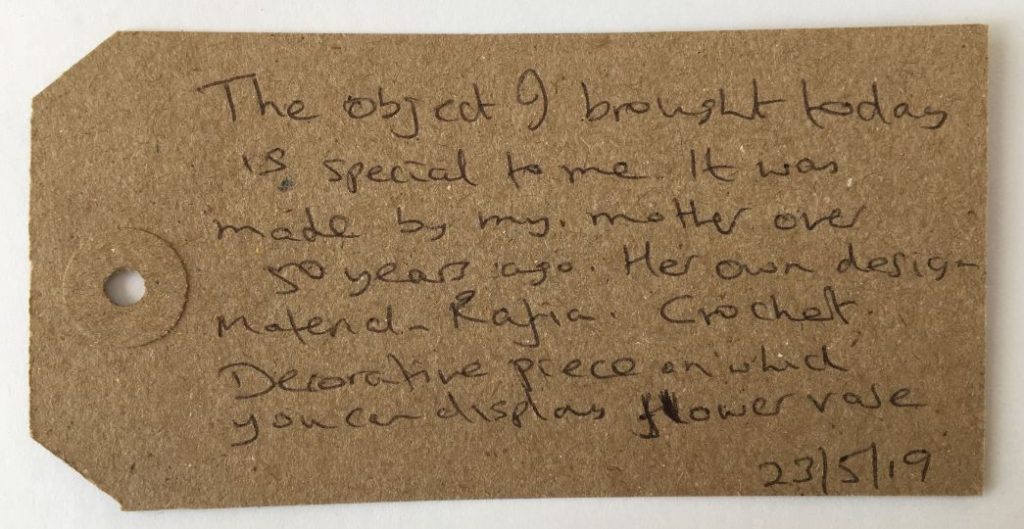 The object I brought today
is special to me. It was
made by my mother over
50 years ago. Her own design
material - Rafia. Crochet.
Decorative piece on which
you can display flower vase
23/5/19